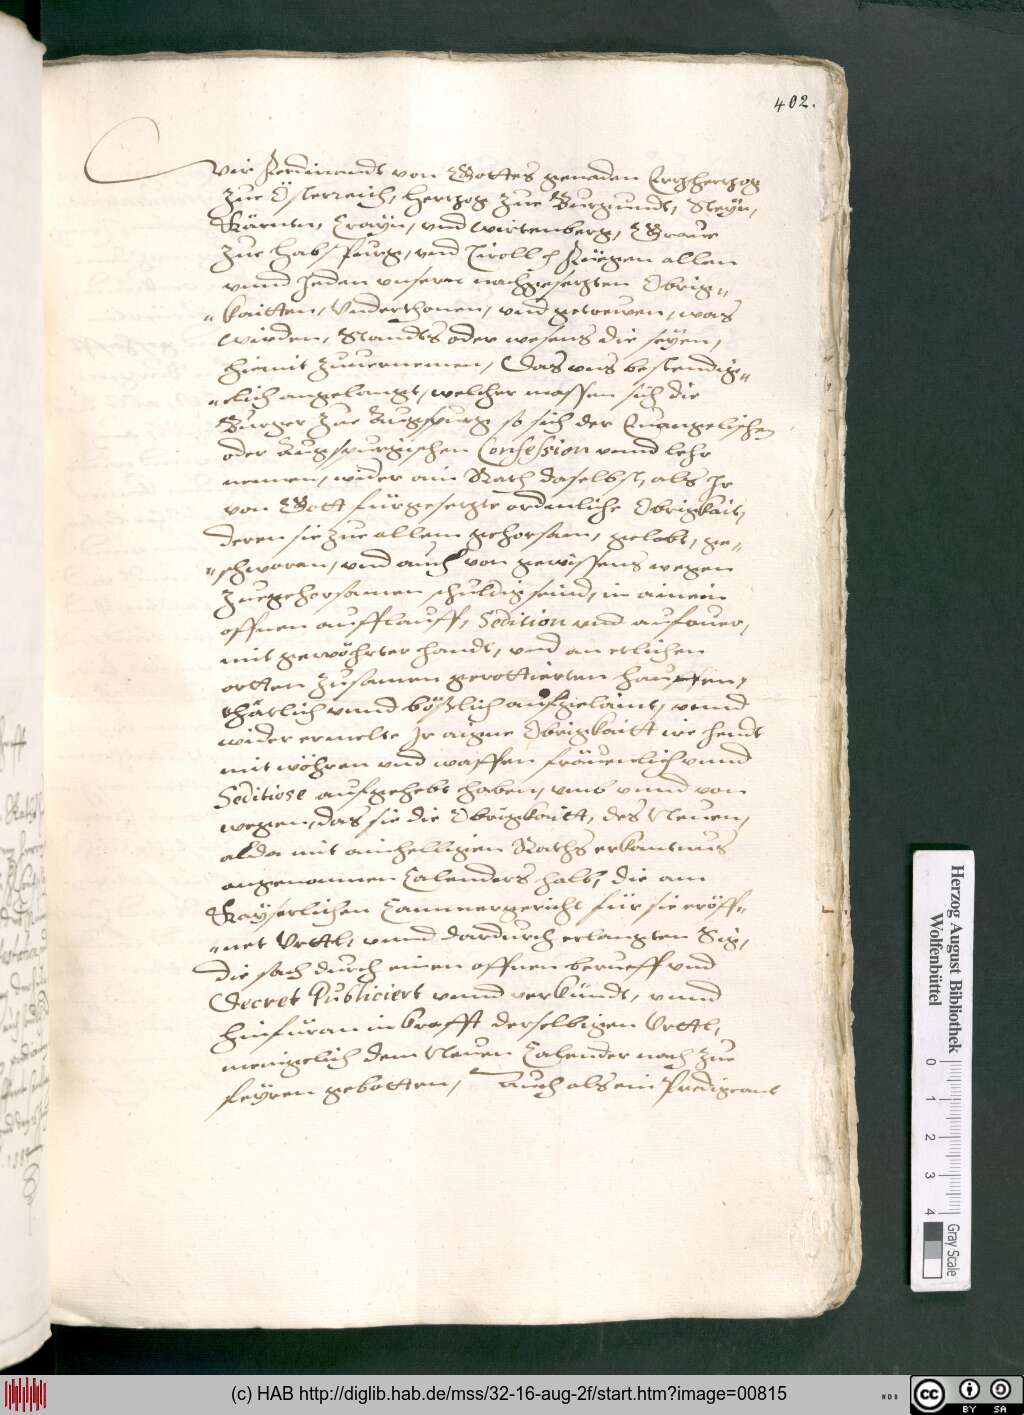 402.
Wir Ferdinandt von Gottes genaden Ertzhertzog
zue Österreich, hertzog zue Burgundt, Steyr,
Kärnten, Crayn, vnd wirtenberg, Graue
zue Habspurg, vnd Tiroll Füegen allen
vnnd Jeden vnsern nachgesetzten Obrig=
=kaitten, Vnderthonen, vnd getrewen, was
wierden, Standts oder wesens die seyen,
hiemit zuuernemen, Das vns bestendig=
=lich angelangt, welcher massen sich die
Burger zue Augspurg so sich der Euangelischen
oder Augspurgischen Confession vnnd lehr
nennen, wider ain Rath daselbst, als Ir
von Gott fürgesetzte ordenliche Obrigkait,
deren sie zue allem gehorsam, gelobt, ge=
=schworen, vnd auch von gewissens wegen
zuegehorsamen schuldig seind, in ainem
offnen aufflauff, Sedition vnd aufruer,
mit gewöhrter handt, vnd an etlichen
ortten zusamen gerottierten hauffen,
thätlich vnnd bößlich aufgelaint, vnnd
wider ermelte Ir aigne Obrigkaitt ire hendt
mit wöhren vnd waffen fräuenlich vnnd
Seditiose aufgehebt haben, vmb vnnd von
wegen, das sie die Obrigkaitt, des Neuen,
alda mit ainhelligem Raths erkantnus
angenommen Calenders halb, die am
Kayserlichen Cammergericht für sie eröff=
=net Vrttl, vnnd dardurch erlangten Sig,
die sach durch einen offnen berueff vnd
Decret Publiciert vnnd verkündt, vnnd
hinfüran in krafft derselbigen Vrttl,
menigclich dem Neuen Calender nach zue
feyren gebotten, Auch als ein Predigcant
Herzog August Bibliothek
Wolfenbüttel
0 1 2 3 4
Gray Scale
(c) HAB http://diglib.hab.de/mss/32-16-aug-2f/start.htm?image=00815
WDB
cc BY SA